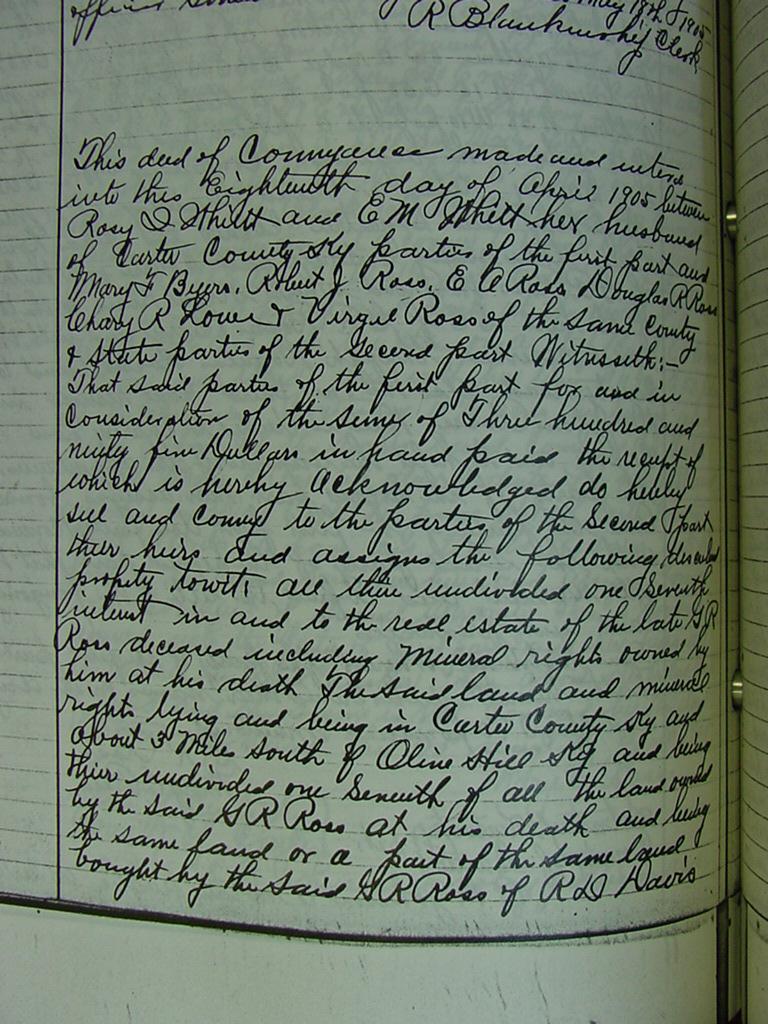 May 18th 1905
R Blankinship Clerk
This deed of Connyance made and entered
into this Eighteenth day of April 1905 between
Rosy D Whitt and E M Whitt her husband
of Carter County Ky parties of the first part and
Mary F Byers, Robert J Ross, E A Ross Douglas R Ross
R Lowe & Virgie Ross of the same County
& state parties of the second part Witnesseth:-
That said parties of the first part for and in
Consideration of the sume of Three hundred and
ninty five Dollars in hand paid the receipt of
which is hereby acknowledged do hereby
sell and convey to the parties of the Second part
their heirs and assigns the following described
property towit: all their undivided one Seventh
interest in and to the real estate of the late G R
Ross deceased including Mineral rights owned by
him at his death The said land and mineral
rights lying and being in Carter County Ky and
about 3 Miles South of Olive Hill Ky and being
their undivided one Seventh of all the land owned
by the said G R Ross at his death and being
the same land or a part of the same land
bought by the said G R Ross of R D Davis